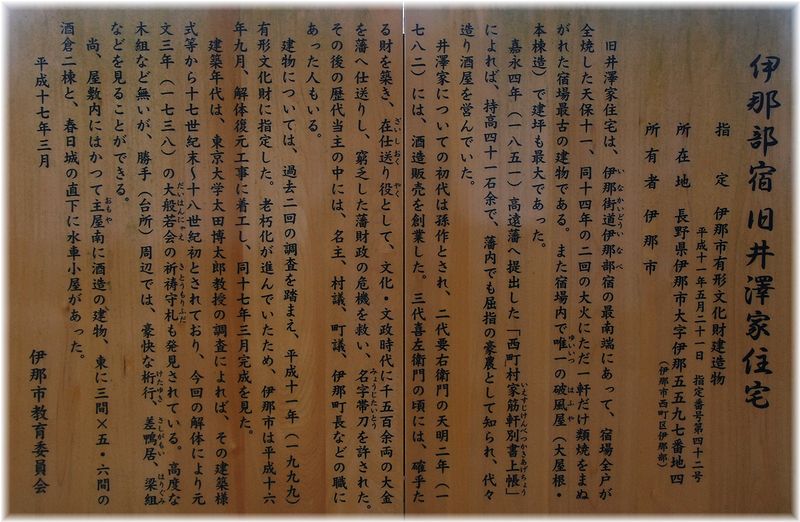 伊那部宿旧井澤家住宅
指定　伊那市有形文化財建造物
平成十一年五月二十一日　指定番号第四十二号
所在地　長野県伊那市大字伊那部五五九七番地四
（伊那市西町区伊那部）
所有者　伊那市
旧井澤家住宅は、伊那街道伊那部宿の最南端にあって、宿場全戸が
全焼した天保十一、同十四年の二回の大火にただ一軒だけ類焼をまぬ
がれた宿場最古の建物である。また宿場内で唯一の破風屋（大屋根・
本棟造）で建坪も最大であった。
嘉永四年（一八五一）高遠藩へ提出した「西町村家筋軒別書上帳」
によれば、持高四十一石余で、藩内でも屈指の豪農として知られ、代々
造り酒屋を営んでいた。
井澤家についての初代は孫作とされ、二代要右衛門の天明二年（一
七八二）には、酒造販売を創業した。三代喜左衛門の頃には、確乎た
る財を築き、在仕送り役として、文化・文政時代に千五百余両の大金
を藩へ仕送りし、窮乏した藩財政の危機を救い、名字帯刀を許された。
その後の歴代当主の中には、名主、村議、町議、伊那町長などの職に
あった人もいる。
建物については、過去二回の調査を踏まえ、平成十一年（一九九九）
有形文化財に指定した。老朽化が進んでいたため、伊那市は平成十六
年九月、解体復元工事に着工し、同十七年三月完成を見た。
建築年代は、東京大学太田博太郎教授の調査によれば、その建築様
式等から十七世紀末～十八世紀初とされており、今回の解体により元
文三年（一七三八）の大般若会の祈祷守札も発見されている。高度な
木組など無いが、勝手（台所）周辺では、豪快な桁行、差鴨居、梁組
などを見ることができる。
尚、屋敷内にはかつて主屋南に酒造の建物、東に三間×五・六間の
酒倉二棟と、春日城の直下に水車小屋があった。
平成十七年三月
伊那市教育委員会